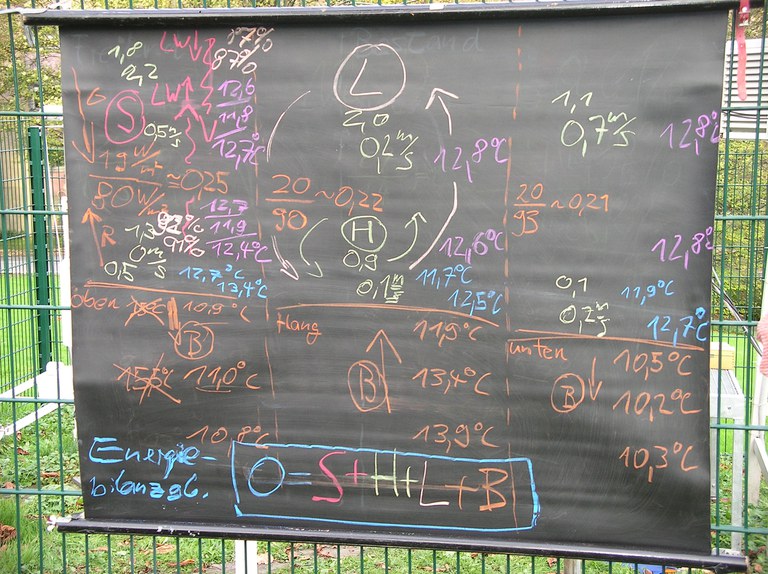 1,8
2,2
LW↓
LW↑
87%
12,6
11,8
12,7°C
S
0,5 m/s
G
19 W/m²
80 W/m² ≈ 0,25
R
1,3
0 m/s
0,5
91%
12,7
11,9
12,4°C
12,7°C
13,4°C
oben
10,9°C
B
11,0°C
10,8°C
Bestand
L
2,0
0,2 m/s
12,8°C
20/90 ~ 0,22
H
0,9
0,1 m/s
12,6°C
11,7°C
12,5°C
Hang
11,9°C
B
13,4°C
13,9°C
1,1
0,7 m/s
12,8°C
20/93 ~ 0,21
12,8°C
0,1
0,2 m/s
11,9°C
12,7°C
unten
10,5°C
B
10,2°C
10,3°C
Energie-
bilanzgl.
0=S+H+L+B